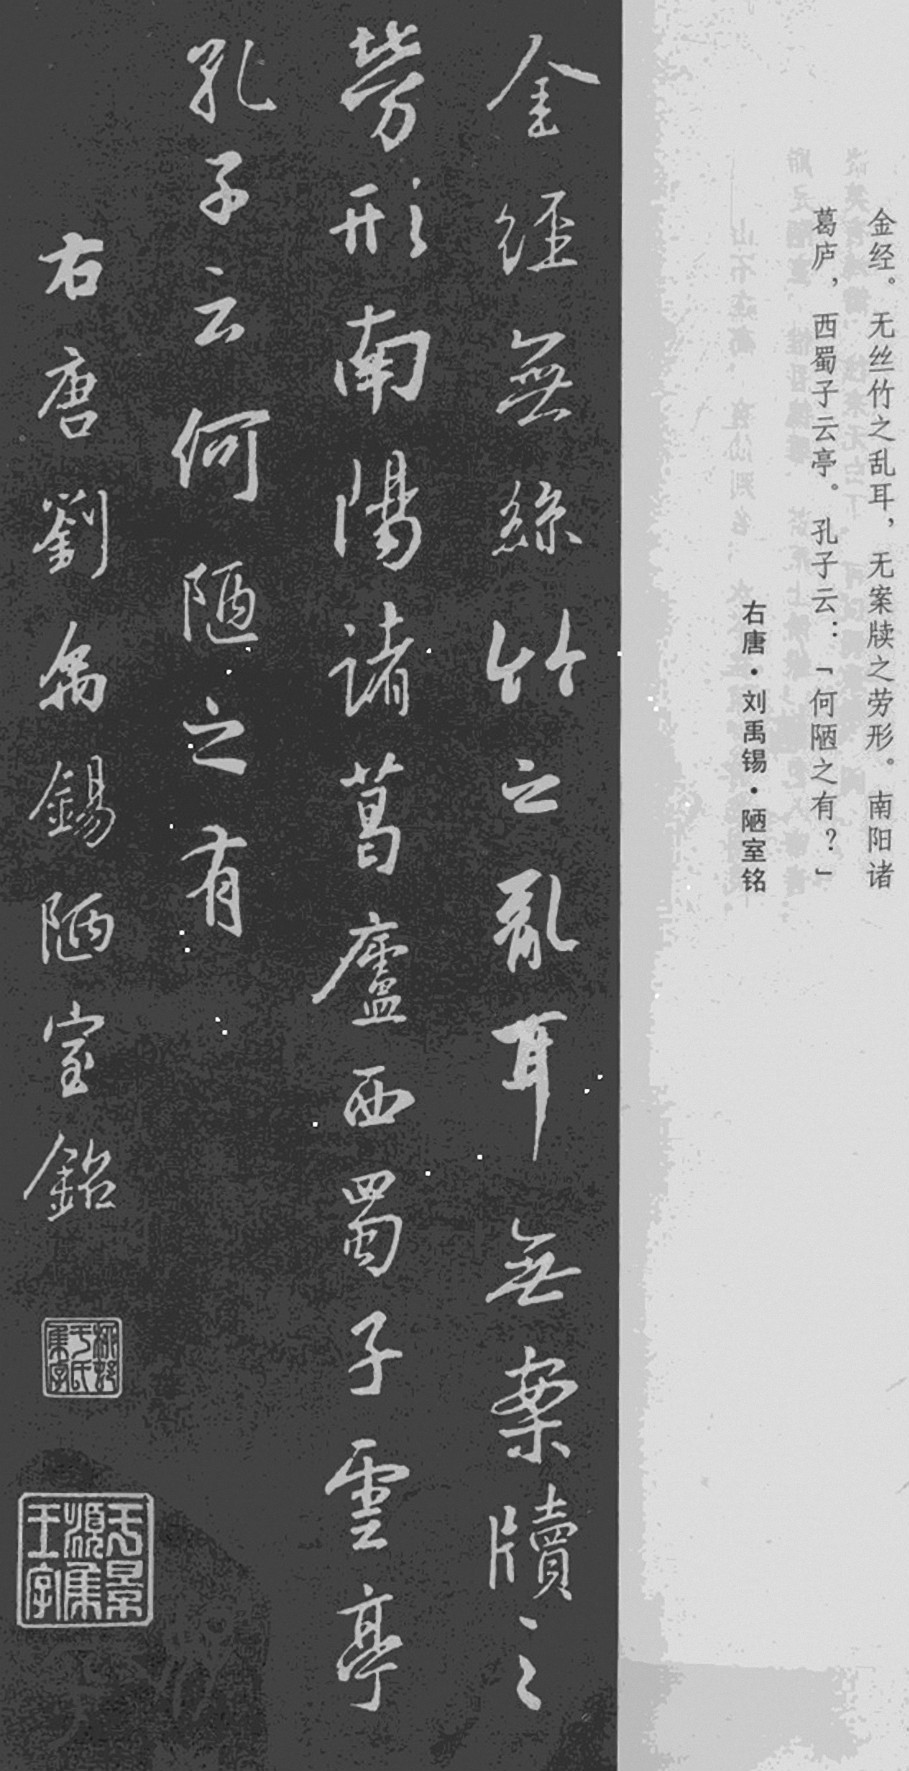 金经。无丝竹之乱耳，无案牍之劳形。南阳诸
葛庐，西蜀子云亭。孔子云：「何陋之有？」
右唐·刘禹锡·陋室铭
金經無絲竹之亂耳無案牘之
勞形南陽諸葛廬西蜀子雲亭
孔子云何陋之有
右唐劉禹錫陋室銘